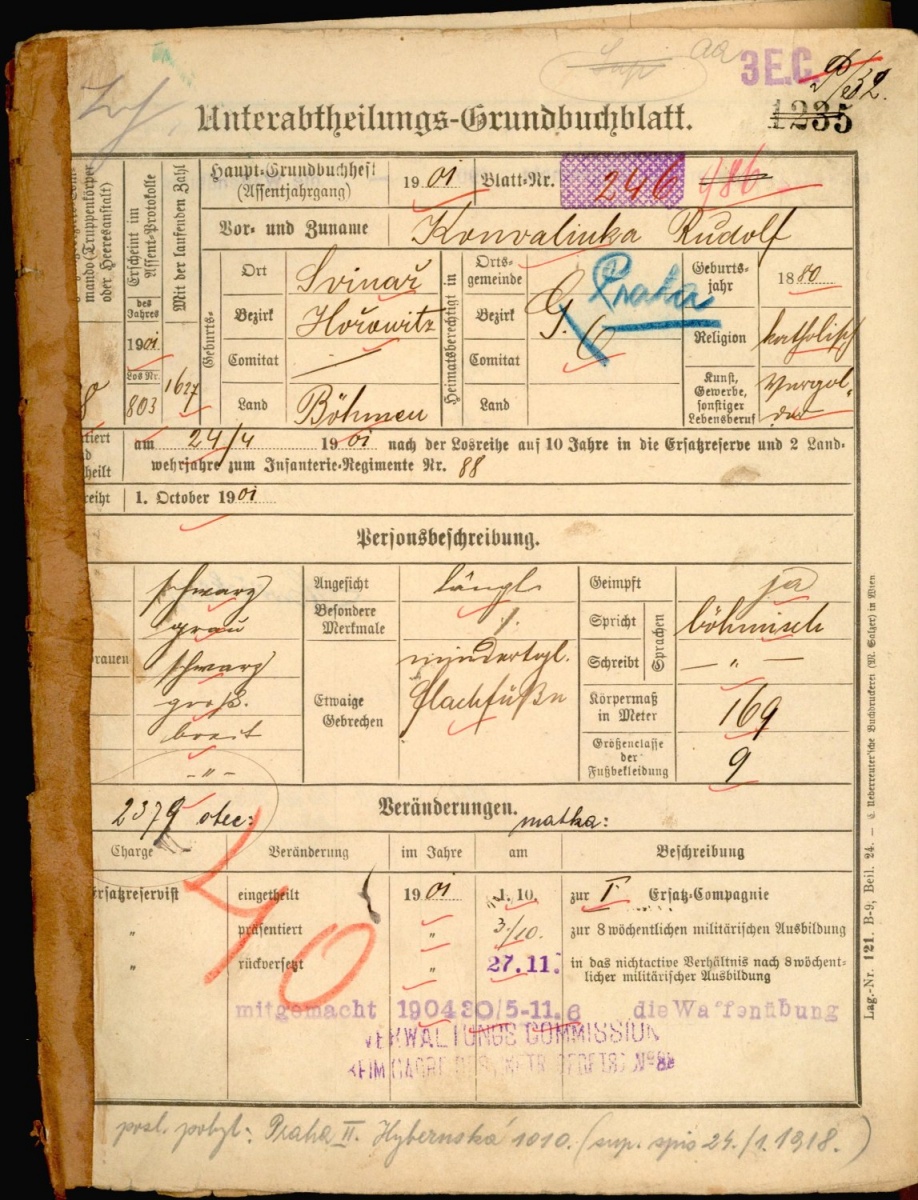 aa
3 E.C.
1235
Unterabtheilungs-Grundbuchblatt.
mando (Truppenkörper oder Heeresanstalt)
Erscheint im Assent-Protokolle
des Jahres
1901
Los Nr.
803
Mit der laufenden Zahl
1627
Haupt-Grundbuchheft (Assentjahrgang) 1901 Blatt-Nr. 246 486
Vor- und Zuname Konvalinka Rudolf
Geburts-
Ort Svinař
Bezirk Hořowitz
Comitat
Land Böhmen
Heimatsberechtigt in
Orts-gemeinde
Bezirk
Comitat
Land
Praha
Geburts-jahr 1880
Religion katholisch
Kunst, Gewerbe, sonstiger Lebensberuf Vergolder
am 24/4 1901 nach der Losreihe auf 10 Jahre in die Ersatzreserve und 2 Land-
wehrjahre zum Infanterie-Regimente Nr. 88
1. October 1901
Personsbeschreibung.
schwarz
grau
schwarz
groß.
breit
- " -
Angesicht längl
Besondere Merkmale
Etwaige Gebrechen mindertgl. Flachfüße
Geimpft ja
Sprachen
Spricht böhmisch
Schreibt — " —
Körpermaß in Meter 169
Größenclasse der Fußbekleidung 9
2379 otec: Veränderungen. matka:
Charge Veränderung im Jahre am Beschreibung
Ersatzreservist eingetheilt 1901 1. 10. zur I Ersatz-Compagnie
" präsentiert " 3/10. zur 8 wöchentlichen militärischen Ausbildung
" rückversetzt " 27. 11. in das nichtactive Verhältnis nach 8 wöchent-
licher militärischer Ausbildung
40
mitgemacht 1904 30/5-11.6 die Waffenübung
VERWALTUNGS COMMISSION
posl. pobyt: Praha II. Hybernská 1010. (sup. spis 24./1. 1918.)
Lag.-Nr. 121. B-9, Beil. 24. — C. Ueberreuter'sche Buchdruckerei (M. Salzer) in Wien